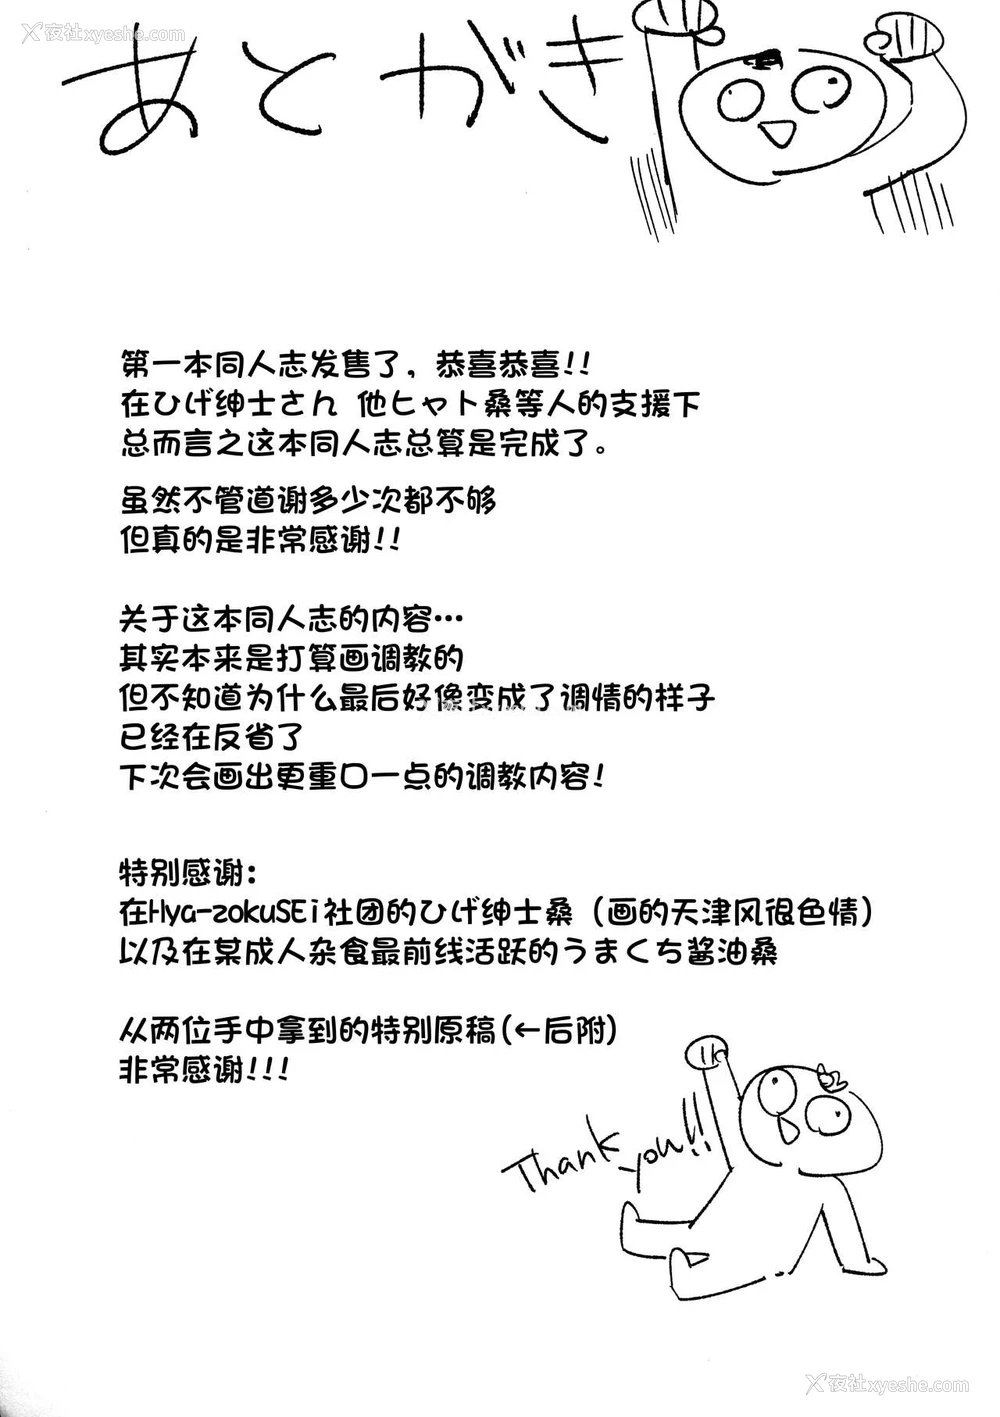 夜社xyeshe.com
あとがき
第一本同人志发售了，恭喜恭喜!!
在ひげ绅士さん 他ヒャト桑等人的支援下
总而言之这本同人志总算是完成了。
虽然不管道谢多少次都不够
但真的是非常感谢!!
关于这本同人志的内容…
其实本来是打算画调教的
但不知道为什么最后好像变成了调情的样子
已经在反省了
下次会画出更重口一点的调教内容!
特别感谢:
在Hya-zokuSEi社团的ひげ绅士桑（画的天津风很色情）
以及在某成人杂食最前线活跃的うまくち酱油桑
从两位手中拿到的特别原稿(←后附)
非常感谢!!!
Thank you!!
夜社xyeshe.com